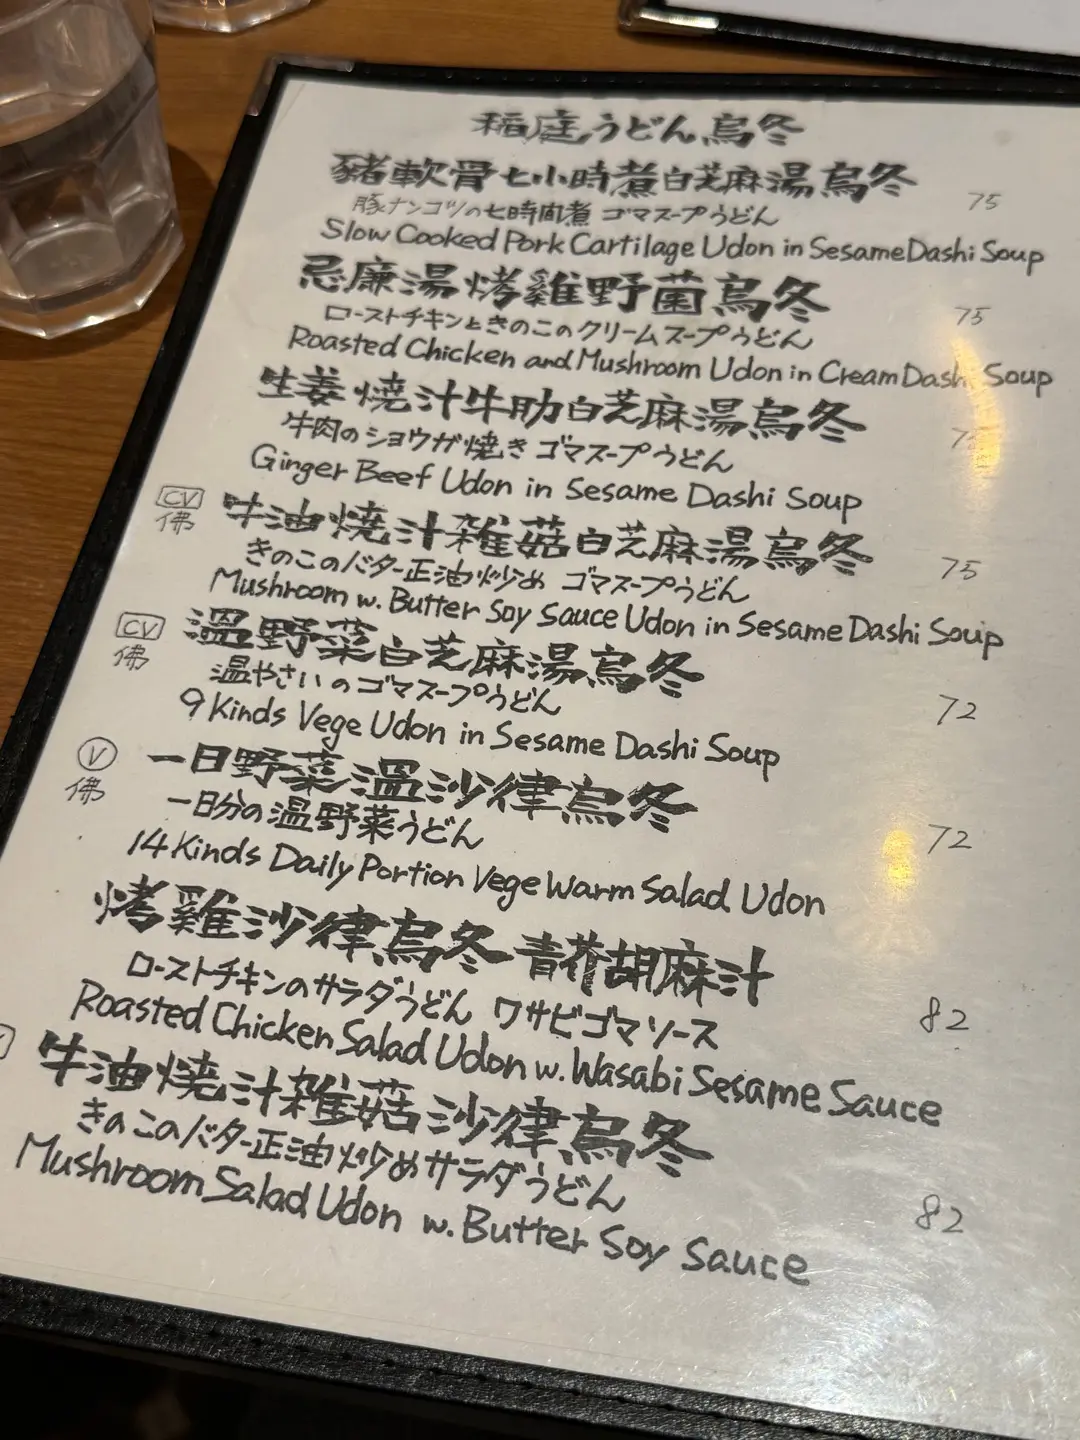 稲庭うどん烏冬
豬軟骨七小時煮白芝麻湯烏冬 75
豚ナンコツの七時間煮 ゴマスープうどん
Slow Cooked Pork Cartilage Udon in Sesame Dashi Soup
忌廉湯烤雞野菌烏冬 75
ローストチキンときのこのクリームスープうどん
Roasted Chicken and Mushroom Udon in Cream Dashi Soup
生姜焼汁牛肋白芝麻湯烏冬
牛肉のショウガ焼き ゴマスープうどん
Ginger Beef Udon in Sesame Dashi Soup
CV 佛 牛油焼汁雑菇白芝麻湯烏冬 75
きのこのバター正油炒め ゴマスープうどん
Mushroom w. Butter Soy Sauce Udon in Sesame Dashi Soup
CV 佛 溫野菜白芝麻湯烏冬 72
温やさいのゴマスープうどん
9 Kinds Vege Udon in Sesame Dashi Soup
V 佛 一日野菜溫沙律烏冬 72
一日分の温野菜うどん
14 Kinds Daily Portion Vege Warm Salad Udon
烤雞沙律烏冬 青芥胡麻汁 82
ローストチキンのサラダうどん ワサビゴマソース
Roasted Chicken Salad Udon w. Wasabi Sesame Sauce
牛油焼汁雑菇沙律烏冬 82
きのこのバター正油炒めサラダうどん
Mushroom Salad Udon w. Butter Soy Sauce